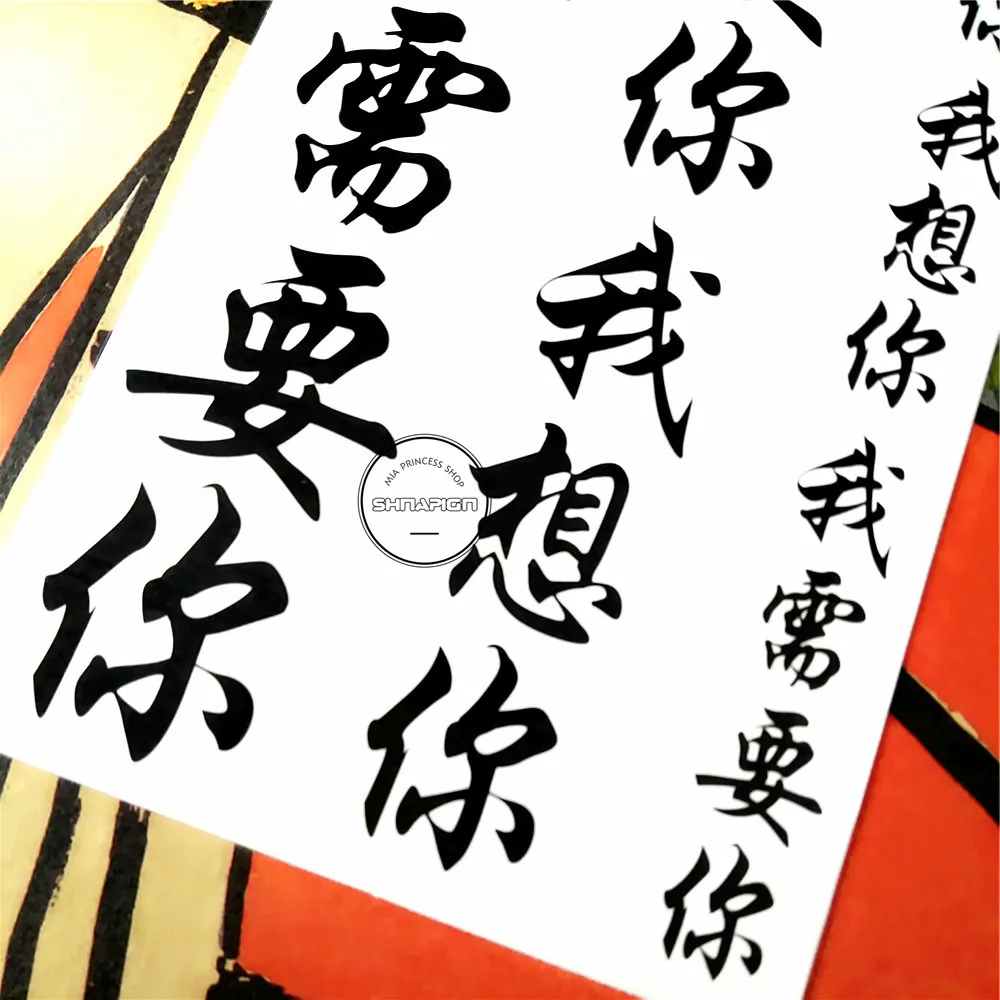 需要你
你
我想你
我想你
我需要你
MIA PRINCESS SHOP
SHNAPIGN